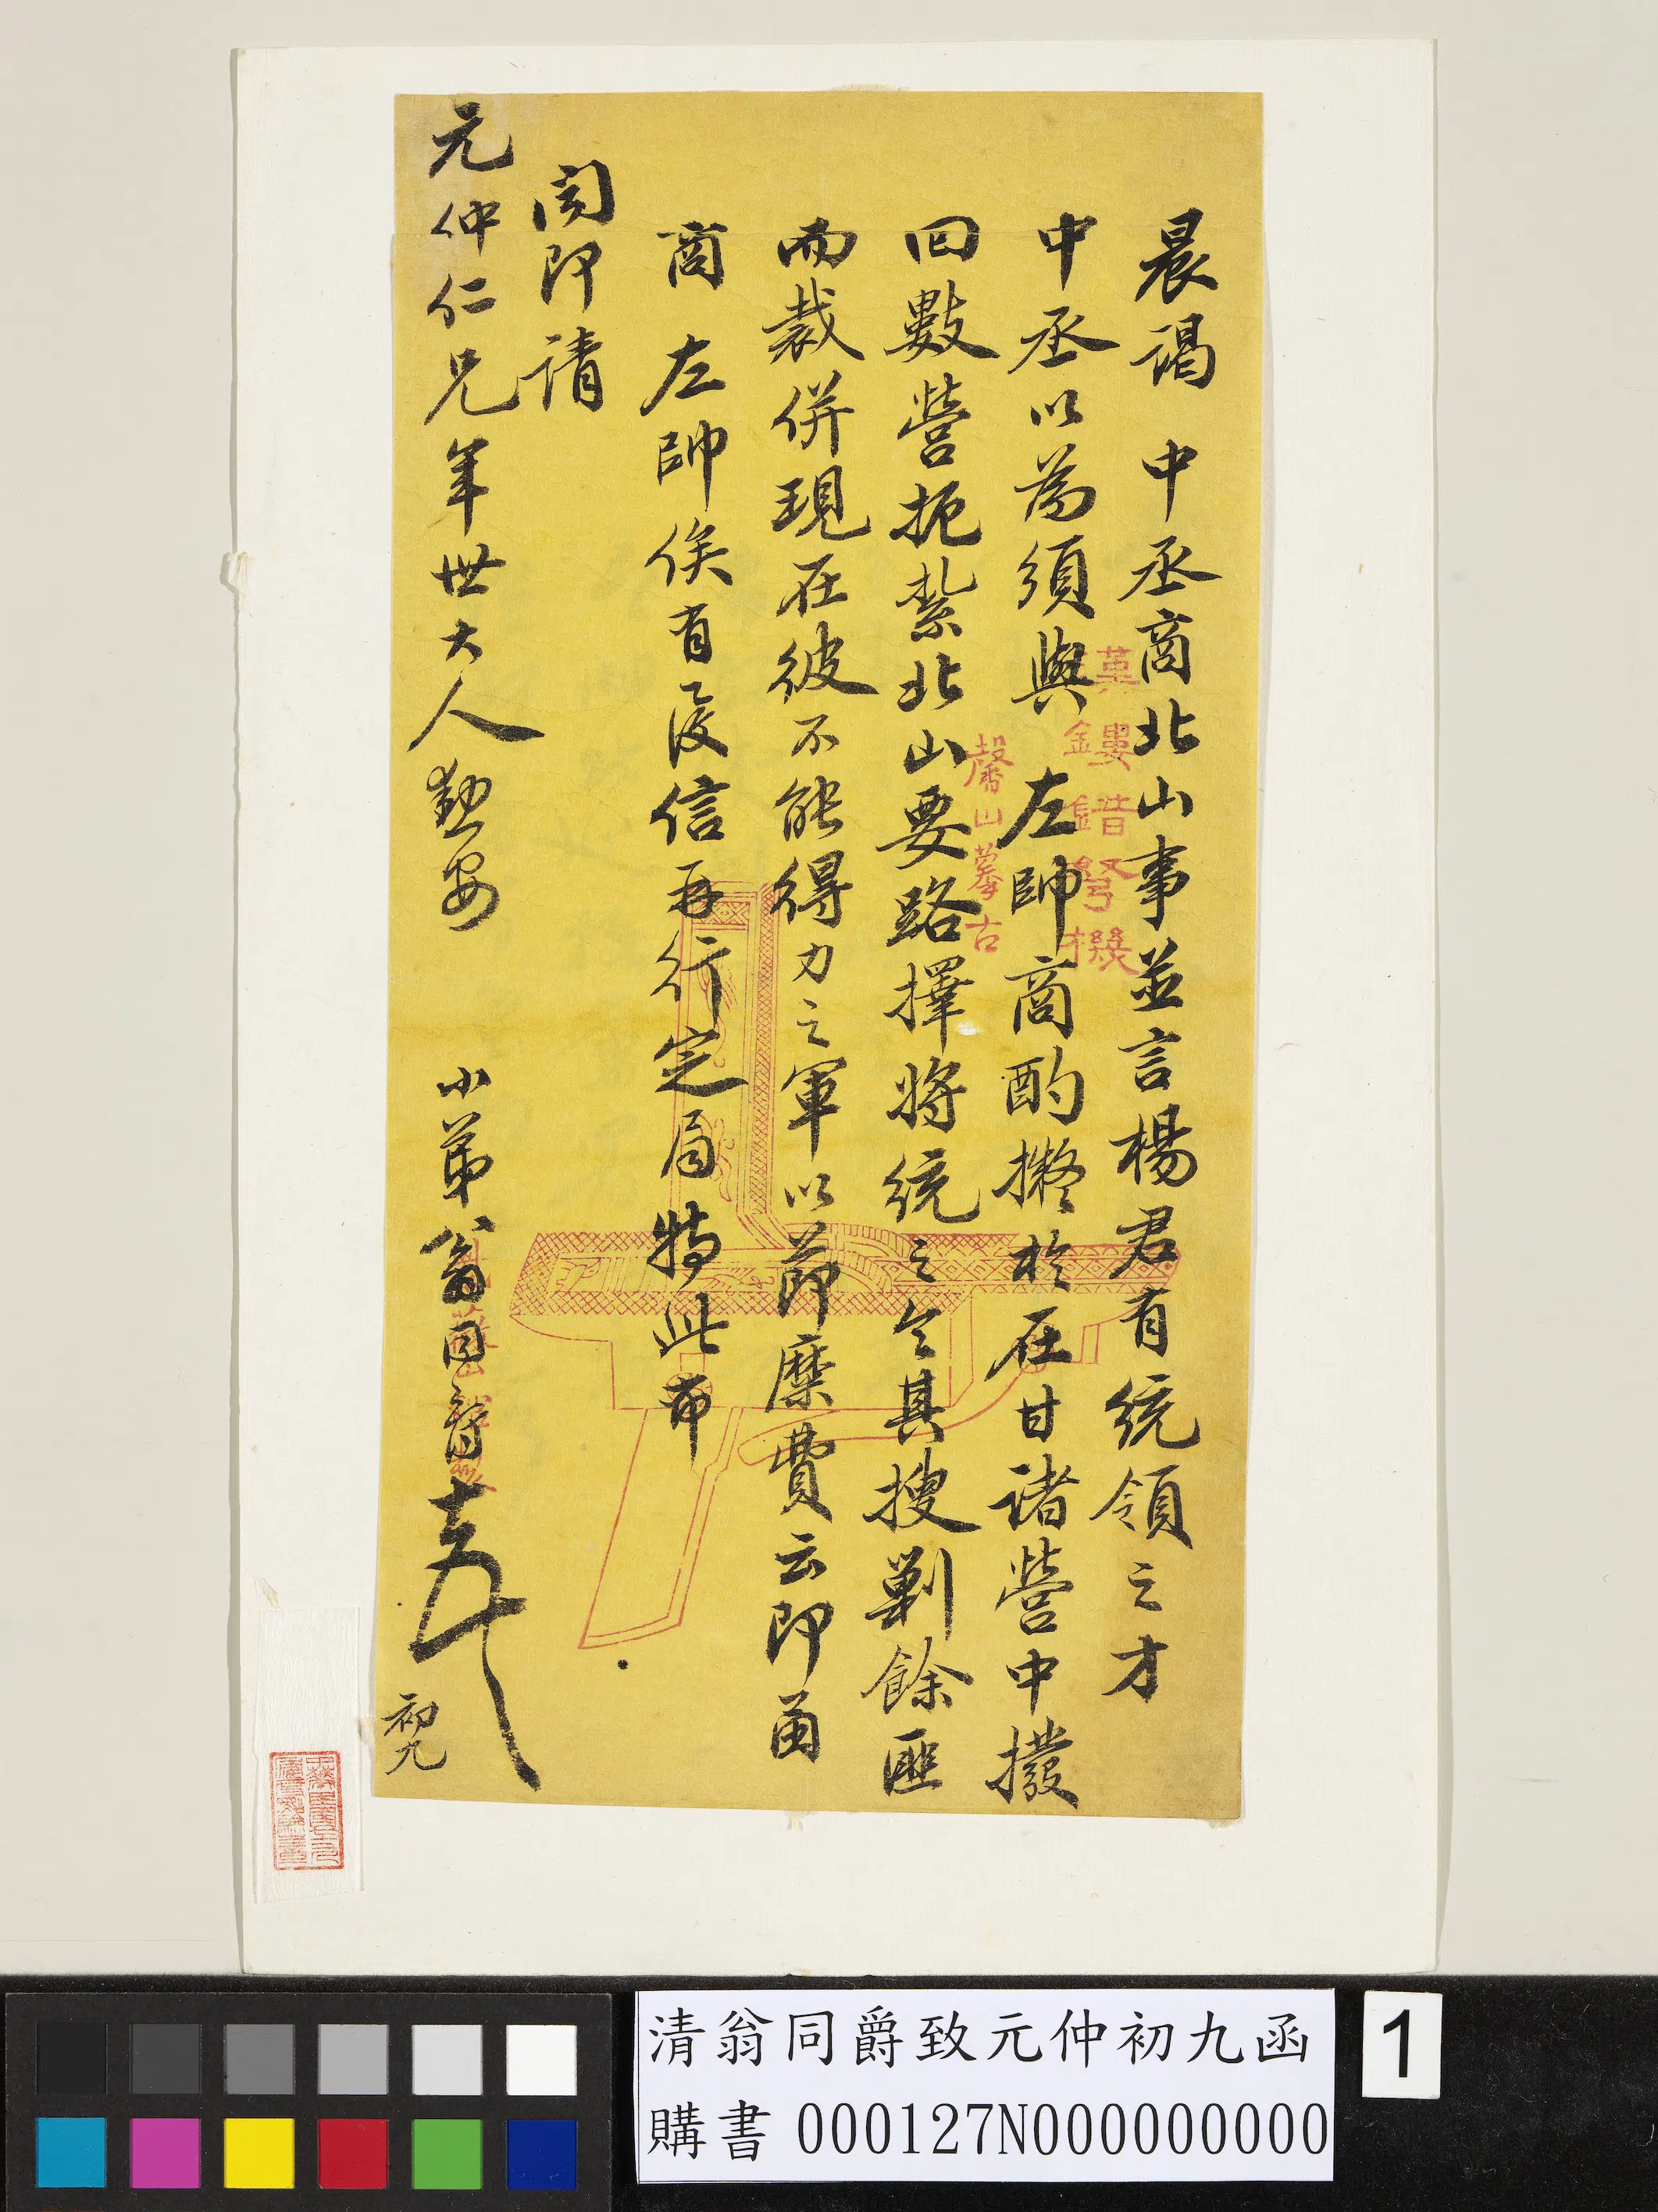 晨謁 中丞商北山事並言楊君有統領之才
中丞以為須與 左帥商酌擬於在甘諸營中撥
回數營扼紮北山要路擇將統之令其搜剿餘匪
而裁併現在彼不能得力之軍以節糜費云即函
商 左帥俟有復信再行定局特此布
聞即請
元仲仁兄年世大人勳安
小弟翁同爵
初九
鏤錯弩機
馨山摹古
清翁同爵致元仲初九函
購書 000127N000000000
1